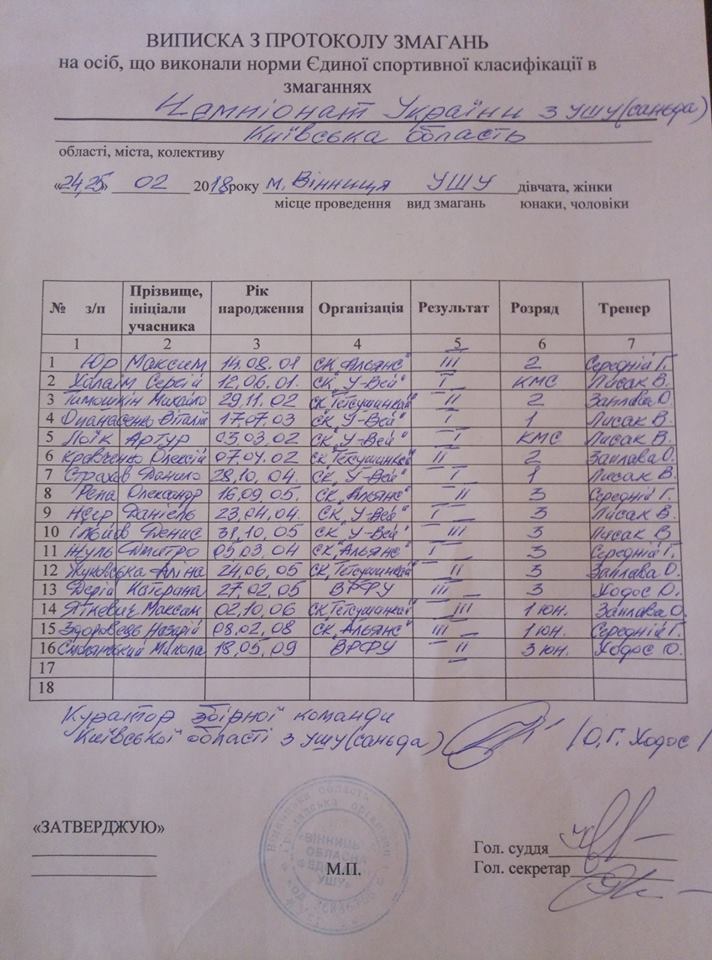 ВИПИСКА З ПРОТОКОЛУ ЗМАГАНЬ
на осіб, що виконали норми Єдиної спортивної класифікації в
змаганнях
Чемпіонат України з ушу (саньда)
Київська область
області, міста, колективу
«24,25» 02 2018 року м. Вінниця УШУ дівчата, жінки
місце проведення вид змагань юнаки, чоловіки
№ з/п Прізвище, ініціали учасника Рік народження Організація Результат Розряд Тренер
1 2 3 4 5 6 7
1 Юр Максим 14.08.01 СК "Альянс" III 2 Середній Г.
2 Сергій 12.06.01. СК "У-Вей" I КМС Лисак В.
3 Тимошкін Михайло 29.11.02 СК "Тетсушинкай" II 2 Заплава О.
4 Опанасенко Віталій 17.07.03 СК "У-Вей" I 1 Лисак В.
5 Лоїк Артур 03.03.02 СК "У-Вей" I КМС Лисак В.
6 Кравченко Олексій 07.04.02 СК "Тетсушинкай" II 2 Заплава О.
7 Страхов Данило 28.10.04. СК "У-Вей" I 1 Лисак В.
8 Репа Олександр 16.09.05. СК "Альянс" II 3 Середній Г.
9 Даніель 23.04.04. СК "У-Вей" I 3 Лисак В.
10 Денис 31.10.05 СК "У-Вей" III 3 Лисак В
11 Жуль Дмитро 05.03.04 СК "Альянс" I 3 Середній Г.
12 Жуковська Аліна 24.06.05 СК "Тетсушинкай" II 3 Заплава О.
13 Дерій Катерина 27.02.05 ВРФУ III 3 Ходос О.
14 Яткевич Максим 02.10.06 СК "Тетсушинкай" III 1 юн. Заплава О.
15 Здоровець Назарій 08.02.08 СК "Альянс" III 1 юн. Середній Г.
16 Микола 18.05.09 ВРФУ II 3 юн. Ходос О.
17
18
Куратор збірної команди
Київської області з ушу (саньда) /О.Г. Ходос/
«ЗАТВЕРДЖУЮ»
М.П.
Гол. суддя
Гол. секретар
ВІННИЦЬКА
ОБЛАСНА
ФЕДЕРАЦІЯ
УШУ